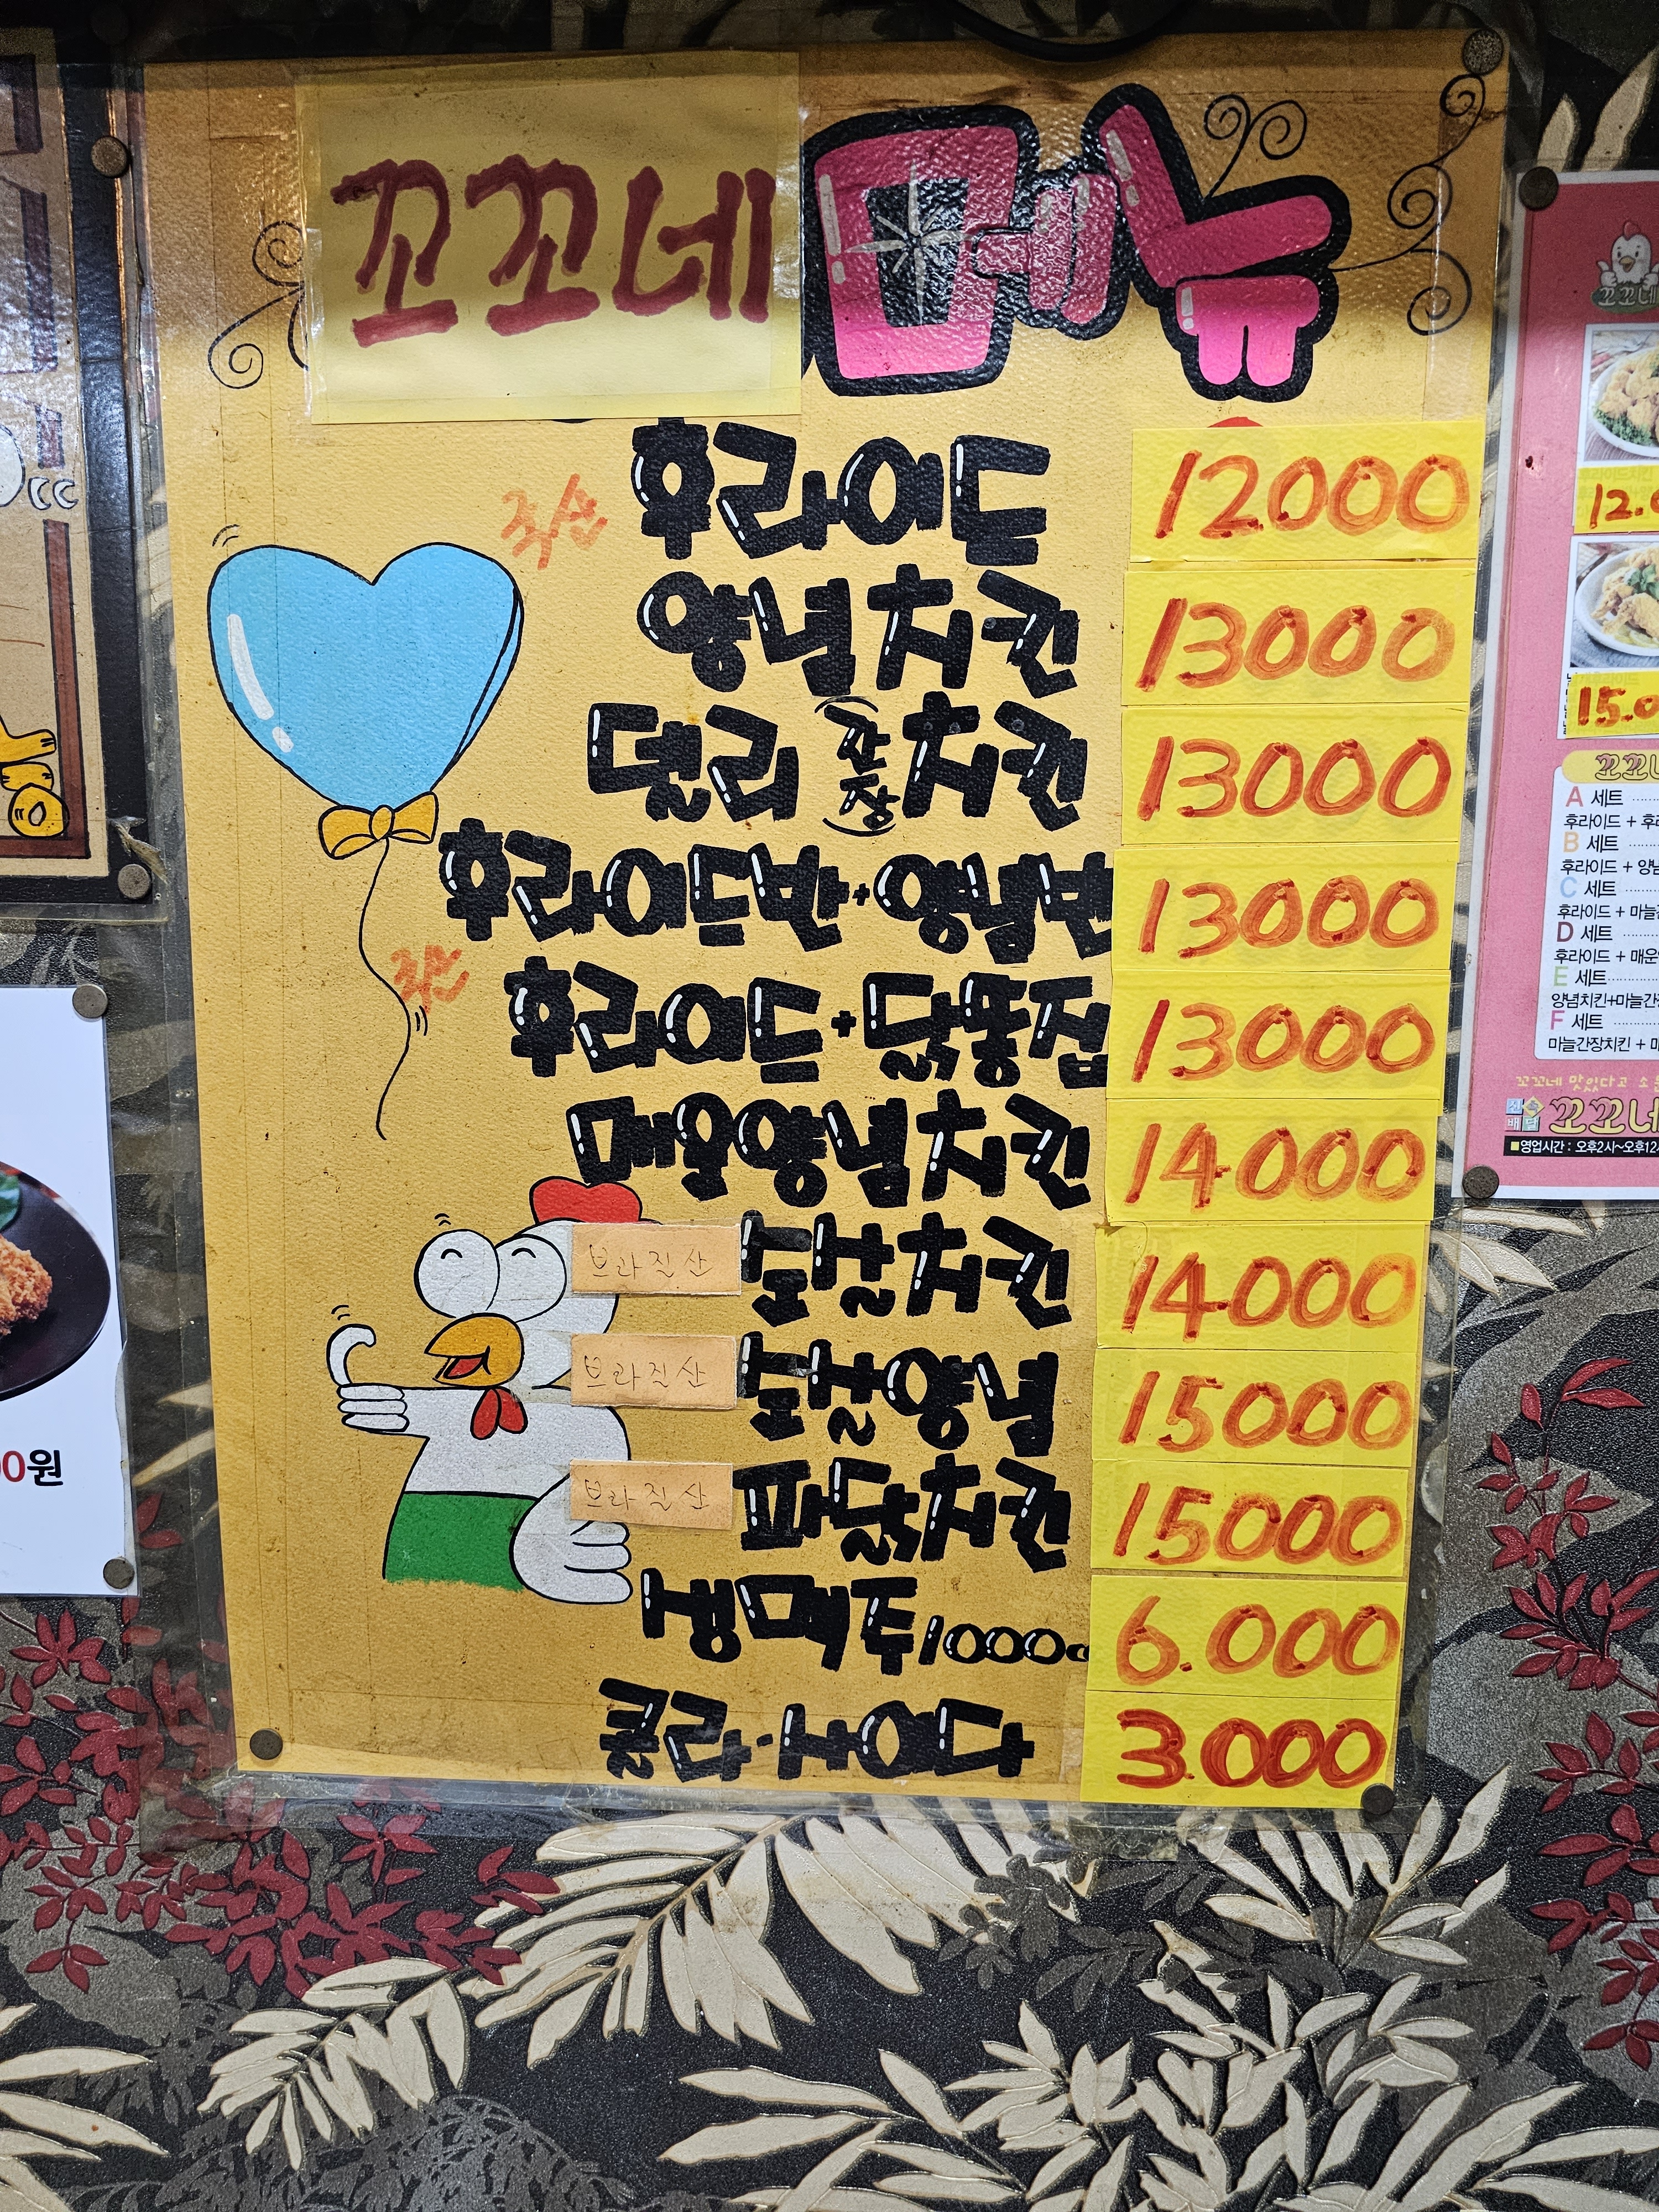 꼬꼬네 메뉴
국산 후라이드 12000
양념치킨 13000
델리(간장)치킨 13000
후라이드반+양념반 13000
국산 후라이드+닭똥집 13000
매운양념치킨 14000
브라질산 순살치킨 14.000
브라질산 순살양념 15000
브라질산 파닭치킨 15000
생맥주1000cc 6.000
콜라·소 3.000
cc
00원
꼬꼬네
12.0
15.0
A 세트
후라이드 + 후라
B 세트
후라이드 + 양념
C 세트
후라이드 + 마늘간
D 세트
후라이드 + 매운
E 세트
양념치킨+마늘간장
F 세트
마늘간장치킨 + 매
꼬꼬네 맛있다고 소문
신속배달 꼬꼬네
영업시간 : 오후2시~오후12시